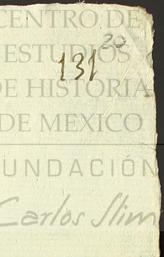 CENTRO DE
20
ESTUDIOS
131
DE HISTORIA
DE MEXICO
FUNDACIÓN
Carlos Slim